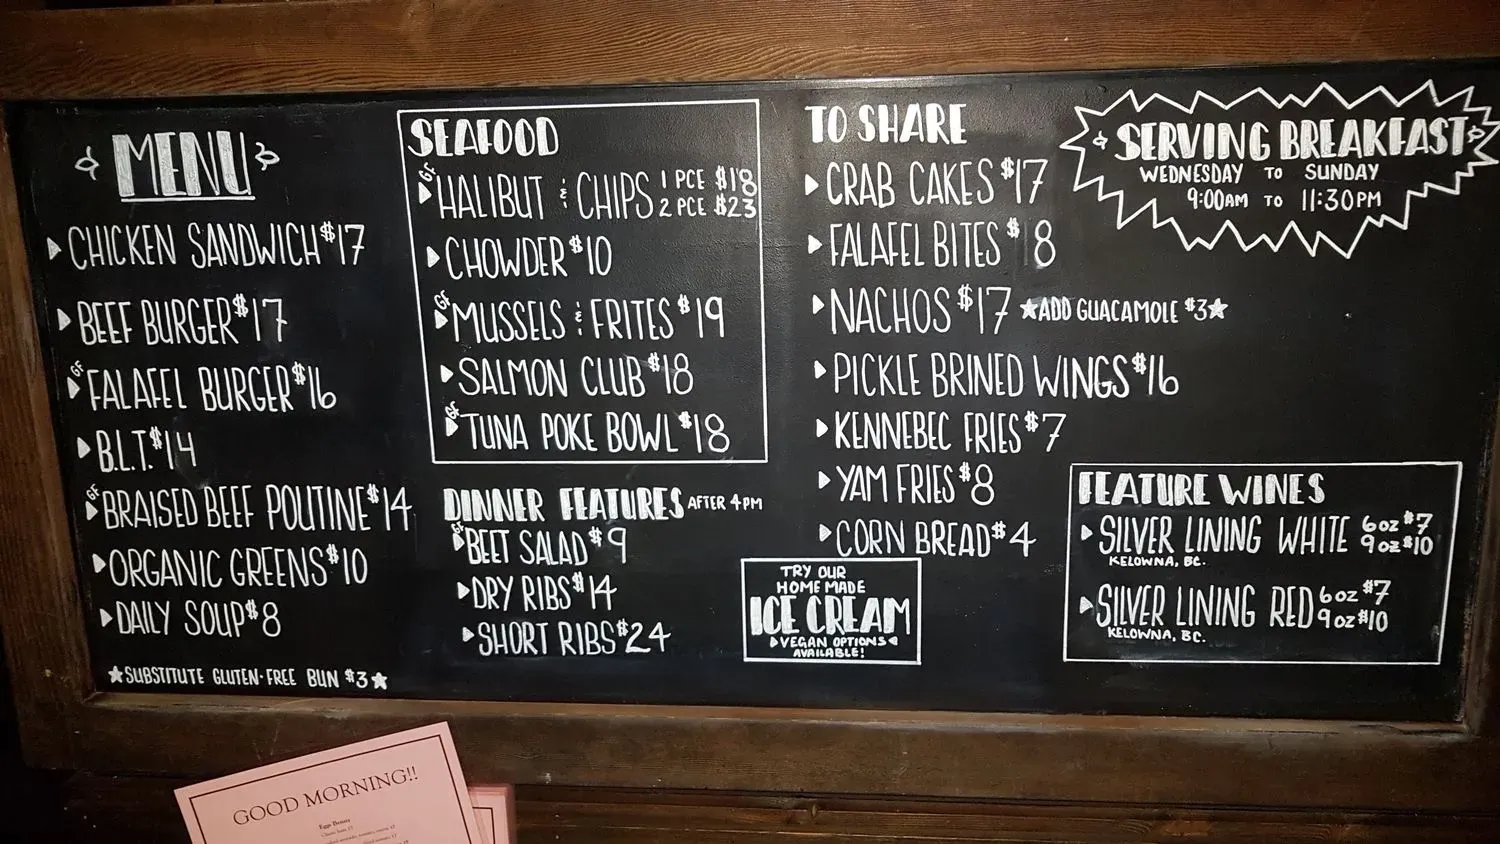 MENU
CHICKEN SANDWICH $17
BEEF BURGER $17
GF FALAFEL BURGER $16
B.L.T. $14
GF BRAISED BEEF POUTINE $14
ORGANIC GREENS $10
DAILY SOUP $8
★SUBSTITUTE GLUTEN-FREE BUN $3★
SEAFOOD
GF HALIBUT & CHIPS 1 PCE $18
2 PCE $23
CHOWDER $10
GF MUSSELS & FRITES $19
SALMON CLUB $18
GF TUNA POKE BOWL $18
DINNER FEATURES AFTER 4PM
GF BEET SALAD $9
DRY RIBS $14
SHORT RIBS $24
TO SHARE
CRAB CAKES $17
FALAFEL BITES $8
NACHOS $17 ★ADD GUACAMOLE $3★
PICKLE BRINED WINGS $16
KENNEBEC FRIES $7
YAM FRIES $8
CORN BREAD $4
TRY OUR
HOMEMADE
ICE CREAM
VEGAN OPTIONS
AVAILABLE!
SERVING BREAKFAST
WEDNESDAY TO SUNDAY
9:00AM TO 11:30PM
FEATURE WINES
SILVER LINING WHITE 6oz $7
9oz $10
KELOWNA, BC.
SILVER LINING RED 6oz $7
9oz $10
KELOWNA, BC.
GOOD MORNING!!
Eggs Benny